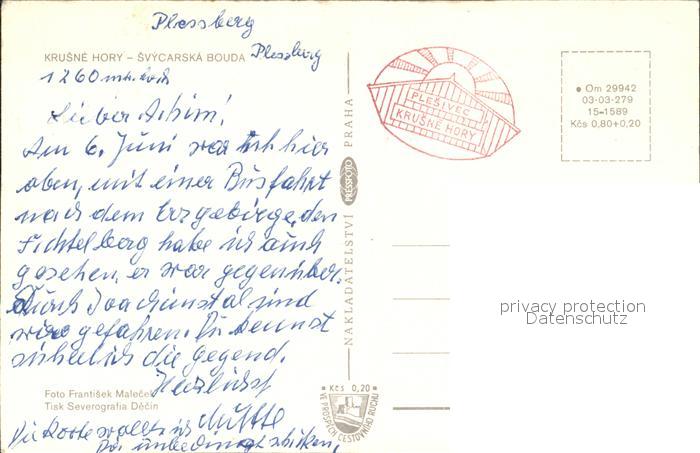 Plessberg
KRUŠNÉ HORY – ŠVÝCARSKÁ BOUDA Plessberg
1260 m hoch
Lieber Achim!
Am 6. Juni war ich hier
oben, mit einer Busfahrt
nach dem Erzgebirge, den
Fichtelberg habe ich auch
gesehen, er war gegenüber.
Durch Joachimstal sind
wir gefahren. Du kennst
sicherlich die Gegend.
Herzlichst
Foto František Maleček
Tisk Severografia Děčín
Die Karte wollte ich
Dir unbedingt schicken,
NAKLADATELSTVÍ PRESSFOTO PRAHA
PLEŠIVEC
KRUŠNÉ HORY
Om 29942
03-03-279
15-1589
Kčs 0,80+0,20
privacy protection
Datenschutz
Kčs 0,20
VE PROSPĚCH CESTOVNÍHO RUCHU